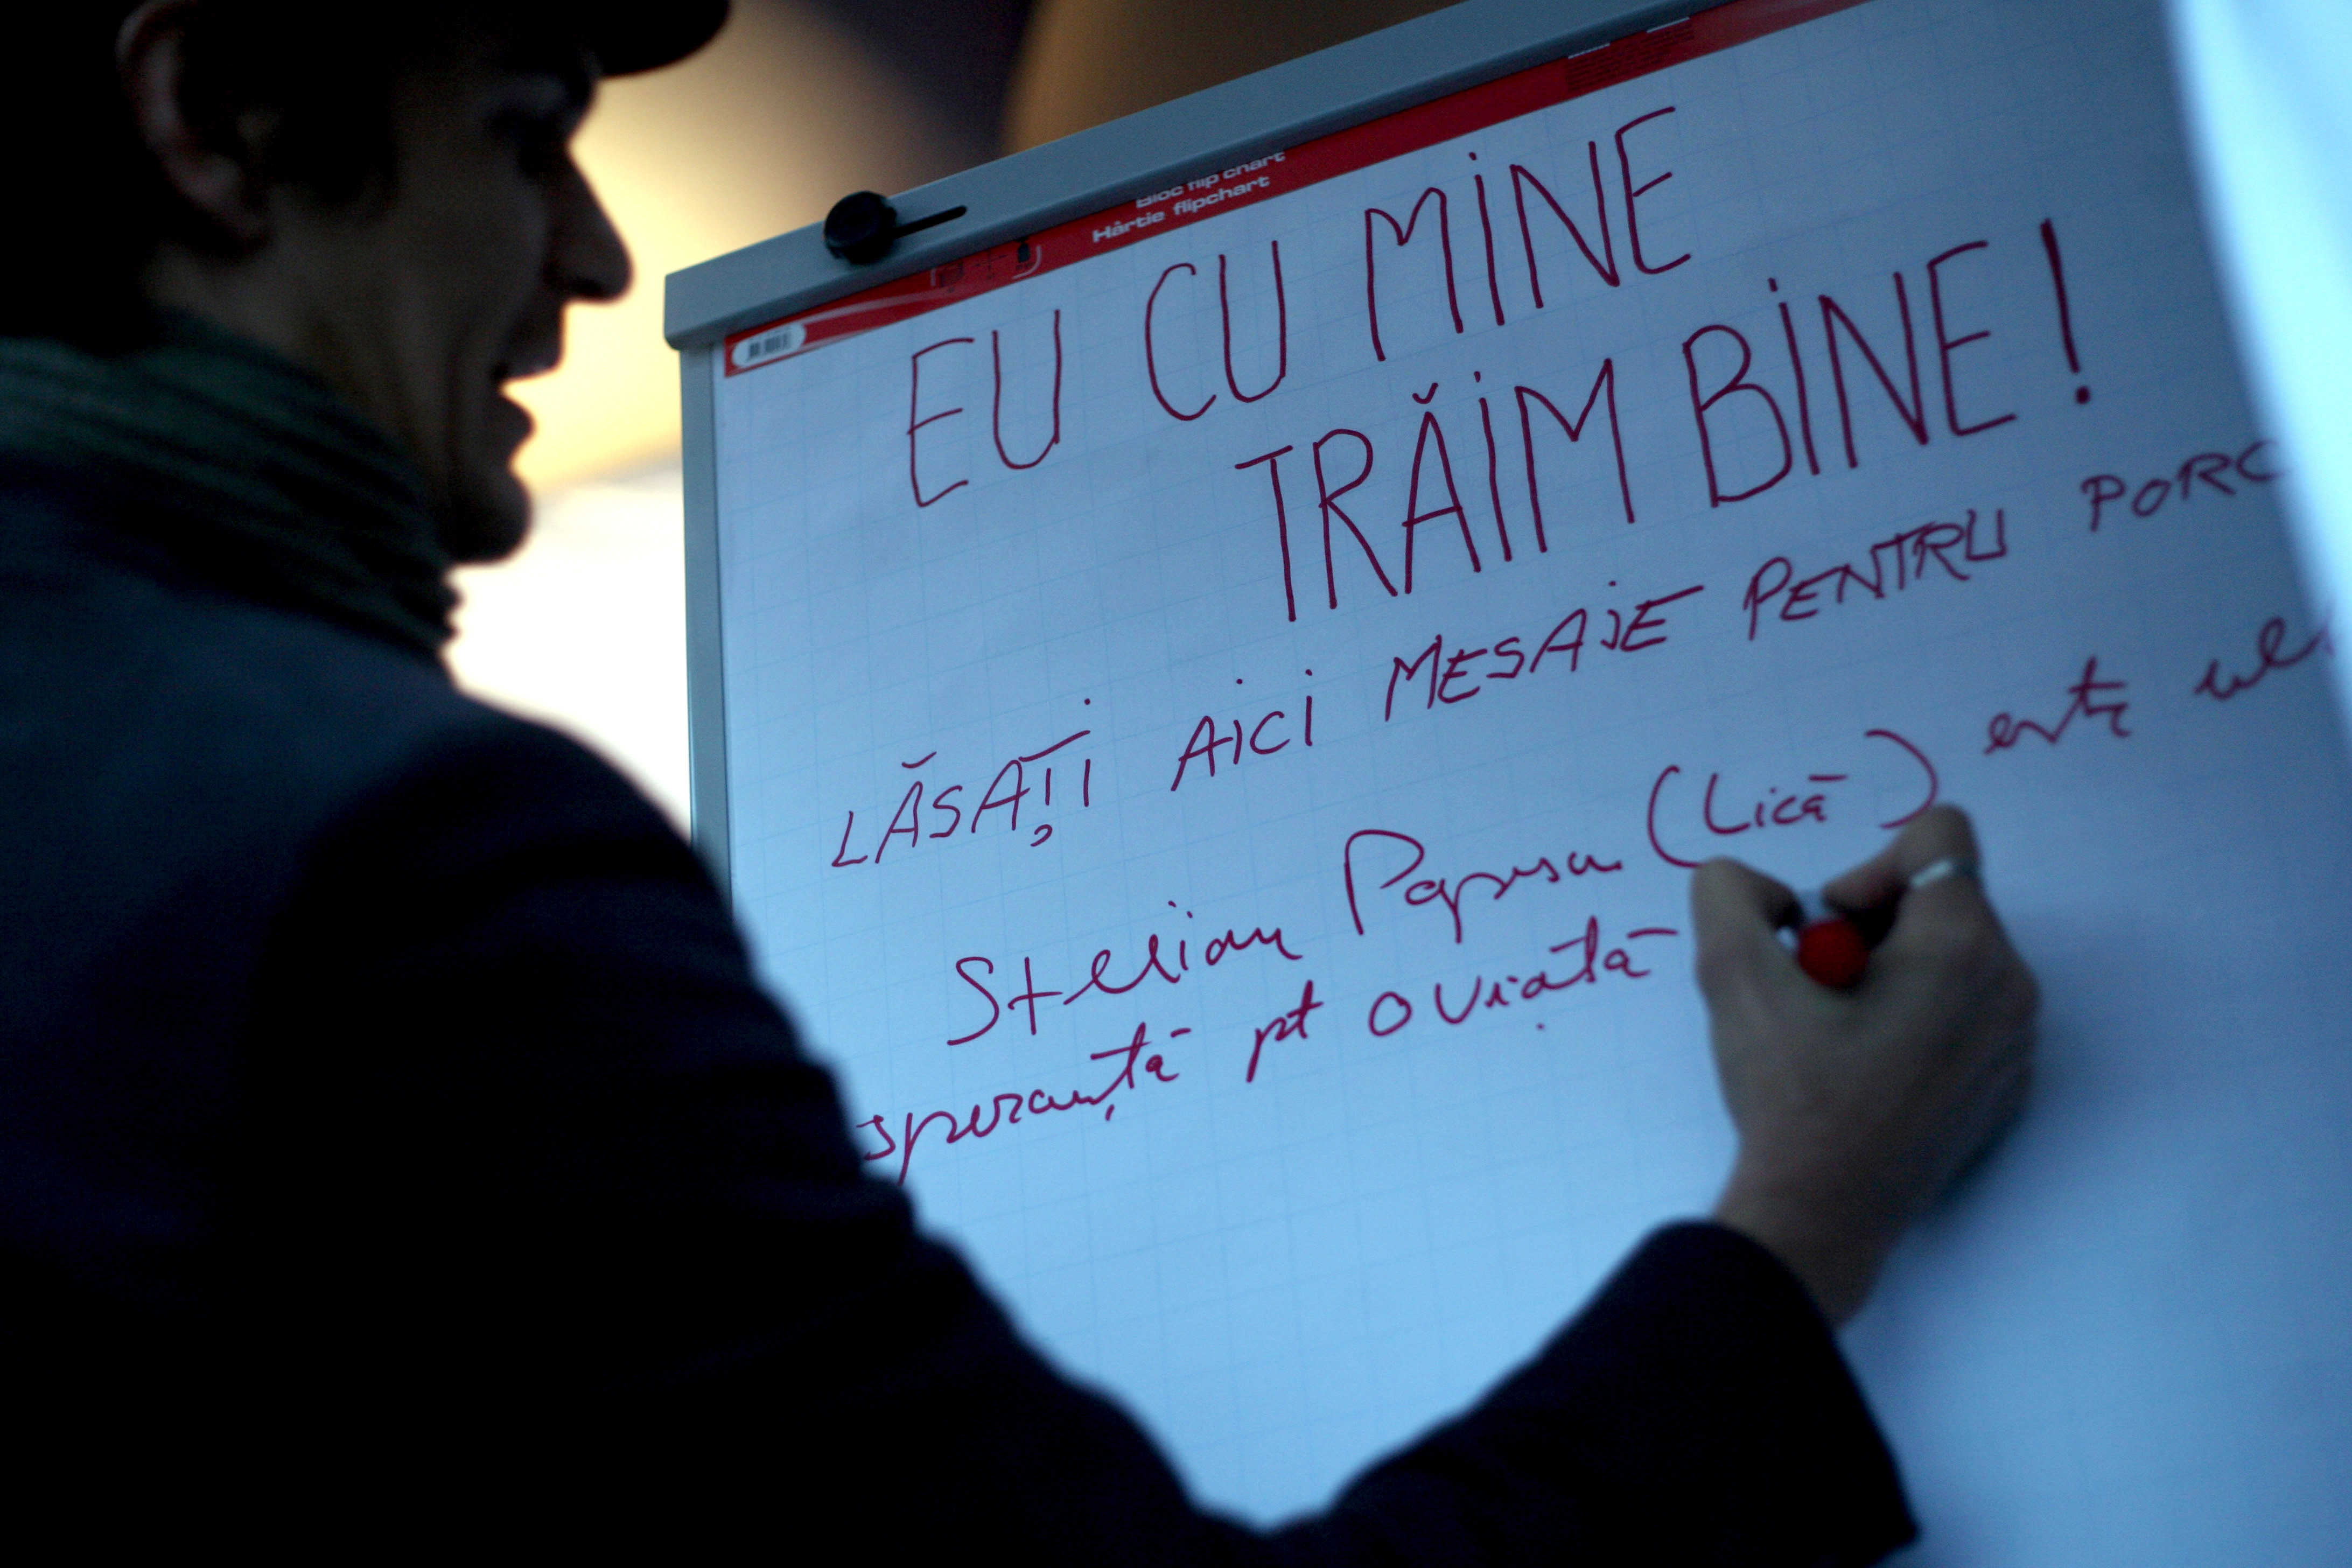 Bloc flip chart
Hârtie flipchart
EU CU MINE
TRĂIM BINE!
LĂSAȚI AICI MESAJE PENTRU PORC
Stelian Popescu (Lică) este
speranță pt o viață